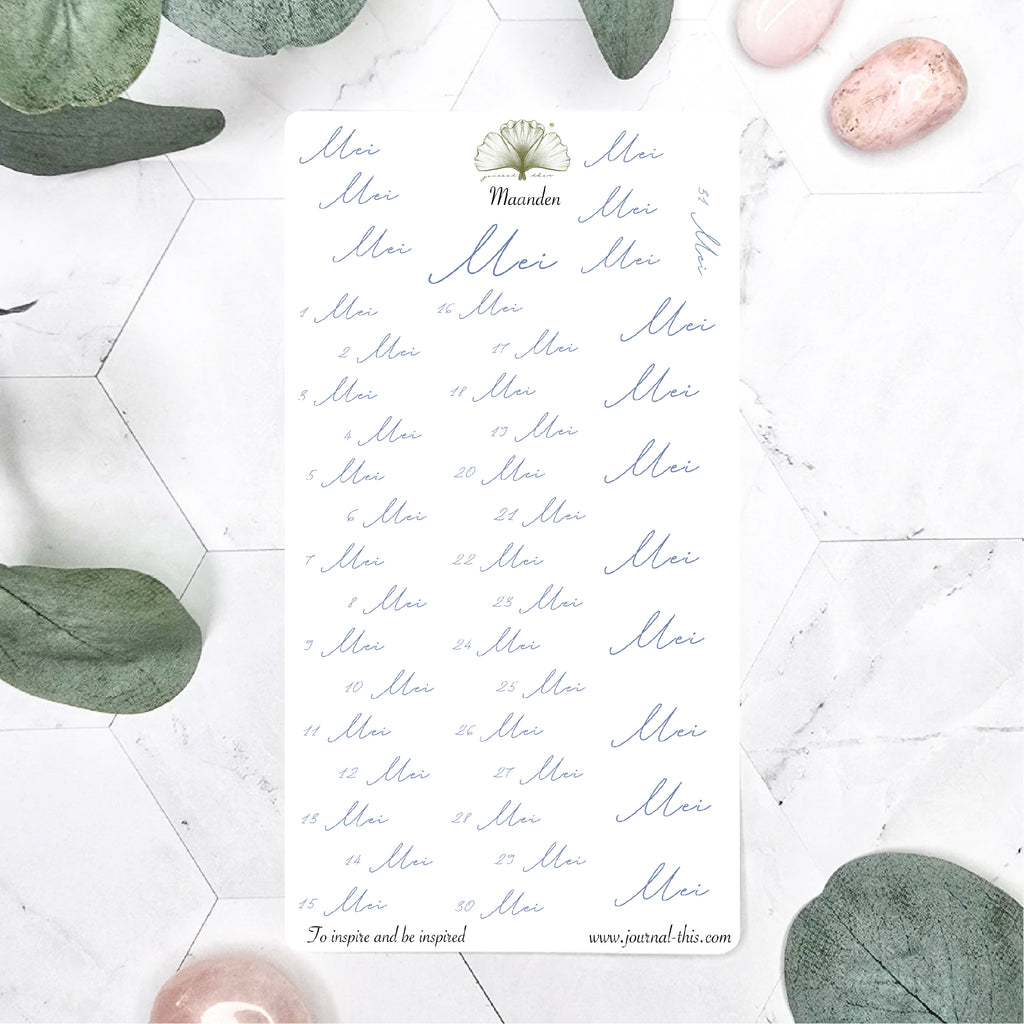 Mei
journal this
Mei
Mei
Maanden
Mei
Mei
Mei
Mei
Mei
31 Mei
1 Mei
16 Mei
Mei
2 Mei
17 Mei
3 Mei
18 Mei
Mei
4 Mei
19 Mei
5 Mei
20 Mei
Mei
6 Mei
21 Mei
7 Mei
22 Mei
Mei
8 Mei
23 Mei
9 Mei
24 Mei
Mei
10 Mei
25 Mei
11 Mei
26 Mei
Mei
12 Mei
27 Mei
13 Mei
28 Mei
Mei
14 Mei
29 Mei
15 Mei
30 Mei
Mei
To inspire and be inspired
www.journal-this.com